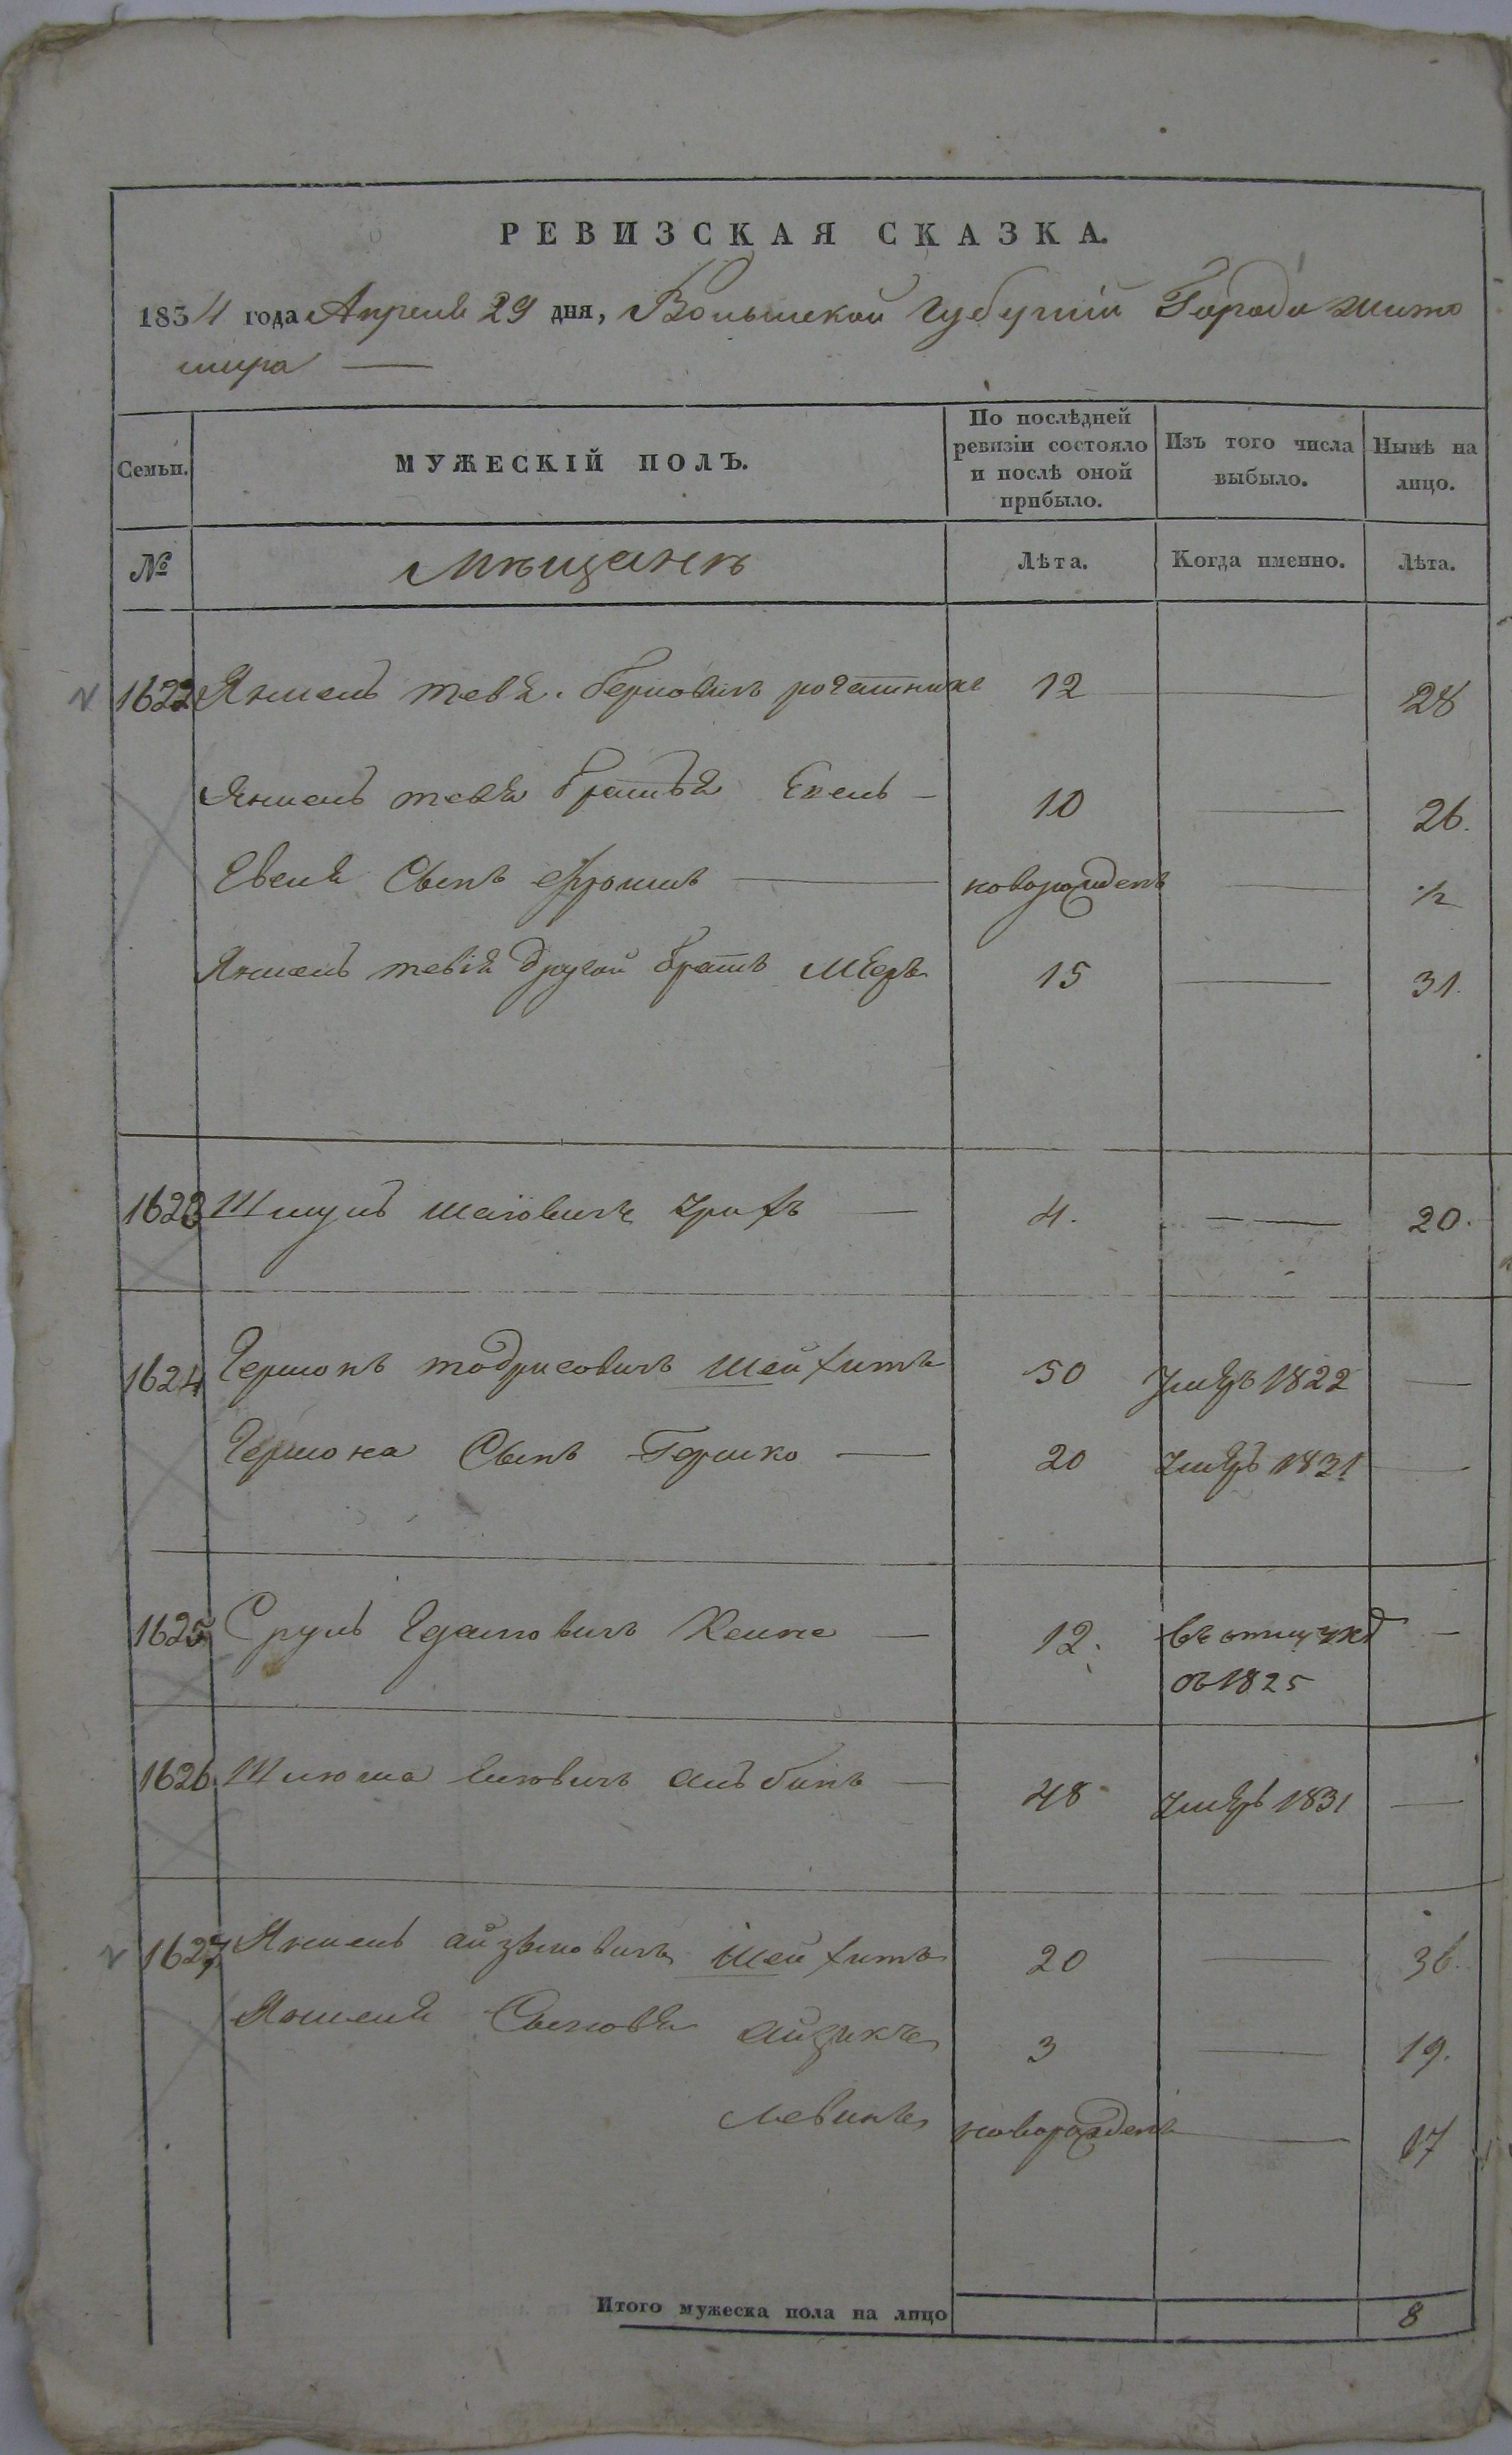 РЕВИЗСКАЯ СКАЗКА.
1834 года Апреля 29 дня, Волынской Губернiи Города Жито
мира —
Семьи. МУЖЕСКIЙ ПОЛЪ. По послѣдней ревизiи состояло и послѣ оной прибыло. Изъ того числа выбыло. Нынѣ на лицо.
№ Мѣщанѣ Лѣта. Когда именно. Лѣта.
1622 Янкель тевя Берковичъ рогатникъ 12 — 28
Янкель тевя братья Екель — 10 — 26.
Сынъ — новорожденъ — ½
Янкель тевiя другой братъ Мееръ 15 — 31.
1623 Шмуль — 4. — 20.
1624 Гершонъ тодрисовичъ Шейхитъ 50 умеръ 1822 —
Гершона Сынъ Гершко — 20 умеръ 1831 —
1625 Сруль — 12. въ отлучкѣ —
съ 1825
1626 Шлюма — 48 умеръ 1831 —
1627 Янкель айзиковичъ Шейхитъ 20 — 36.
Янкеля Сыновья айзикъ 3 — 19.
левикъ новорожденъ — 17
Итого мужеска пола на лицо 8